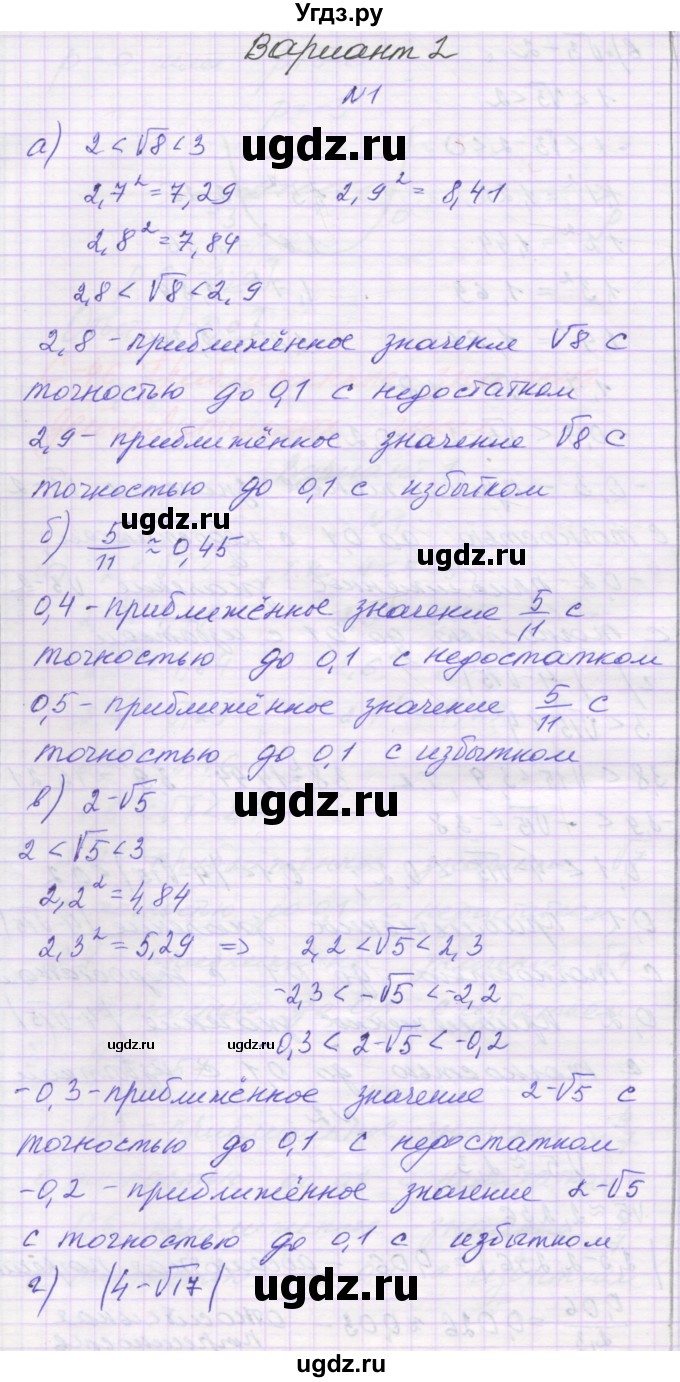 Угдз.ру
Вариант 2
N1
а) 2 < √8 < 3
ugdz.ru
2,7² = 7,29 2,9² = 8,41
2,8² = 7,84
2,8 < √8 < 2,9
2,8 - приближённое значение √8 с
точностью до 0,1 с недостатком
2,9 - приближённое значение √8 с
точностью до 0,1 с избытком
ugdz.ru
б) 5/11 ≈ 0,45
ugdz.ru
0,4 - приближённое значение 5/11 с
точностью до 0,1 с недостатком
0,5 - приближённое значение 5/11 с
точностью до 0,1 с избытком
в) 2-√5
ugdz.ru
2 < √5 < 3
2,2² = 4,84
2,3² = 5,29 => 2,2 < √5 < 2,3
-2,3 < -√5 < -2,2
ugdz.ru
ugdz.ru
0,3 < 2-√5 < -0,2
-0,3 - приближённое значение 2-√5 с
точностью до 0,1 с недостатком
-0,2 - приближённое значение 2-√5
с точностью до 0,1 с избытком
г) |4-√17|
ugdz.ru
ugdz.ru